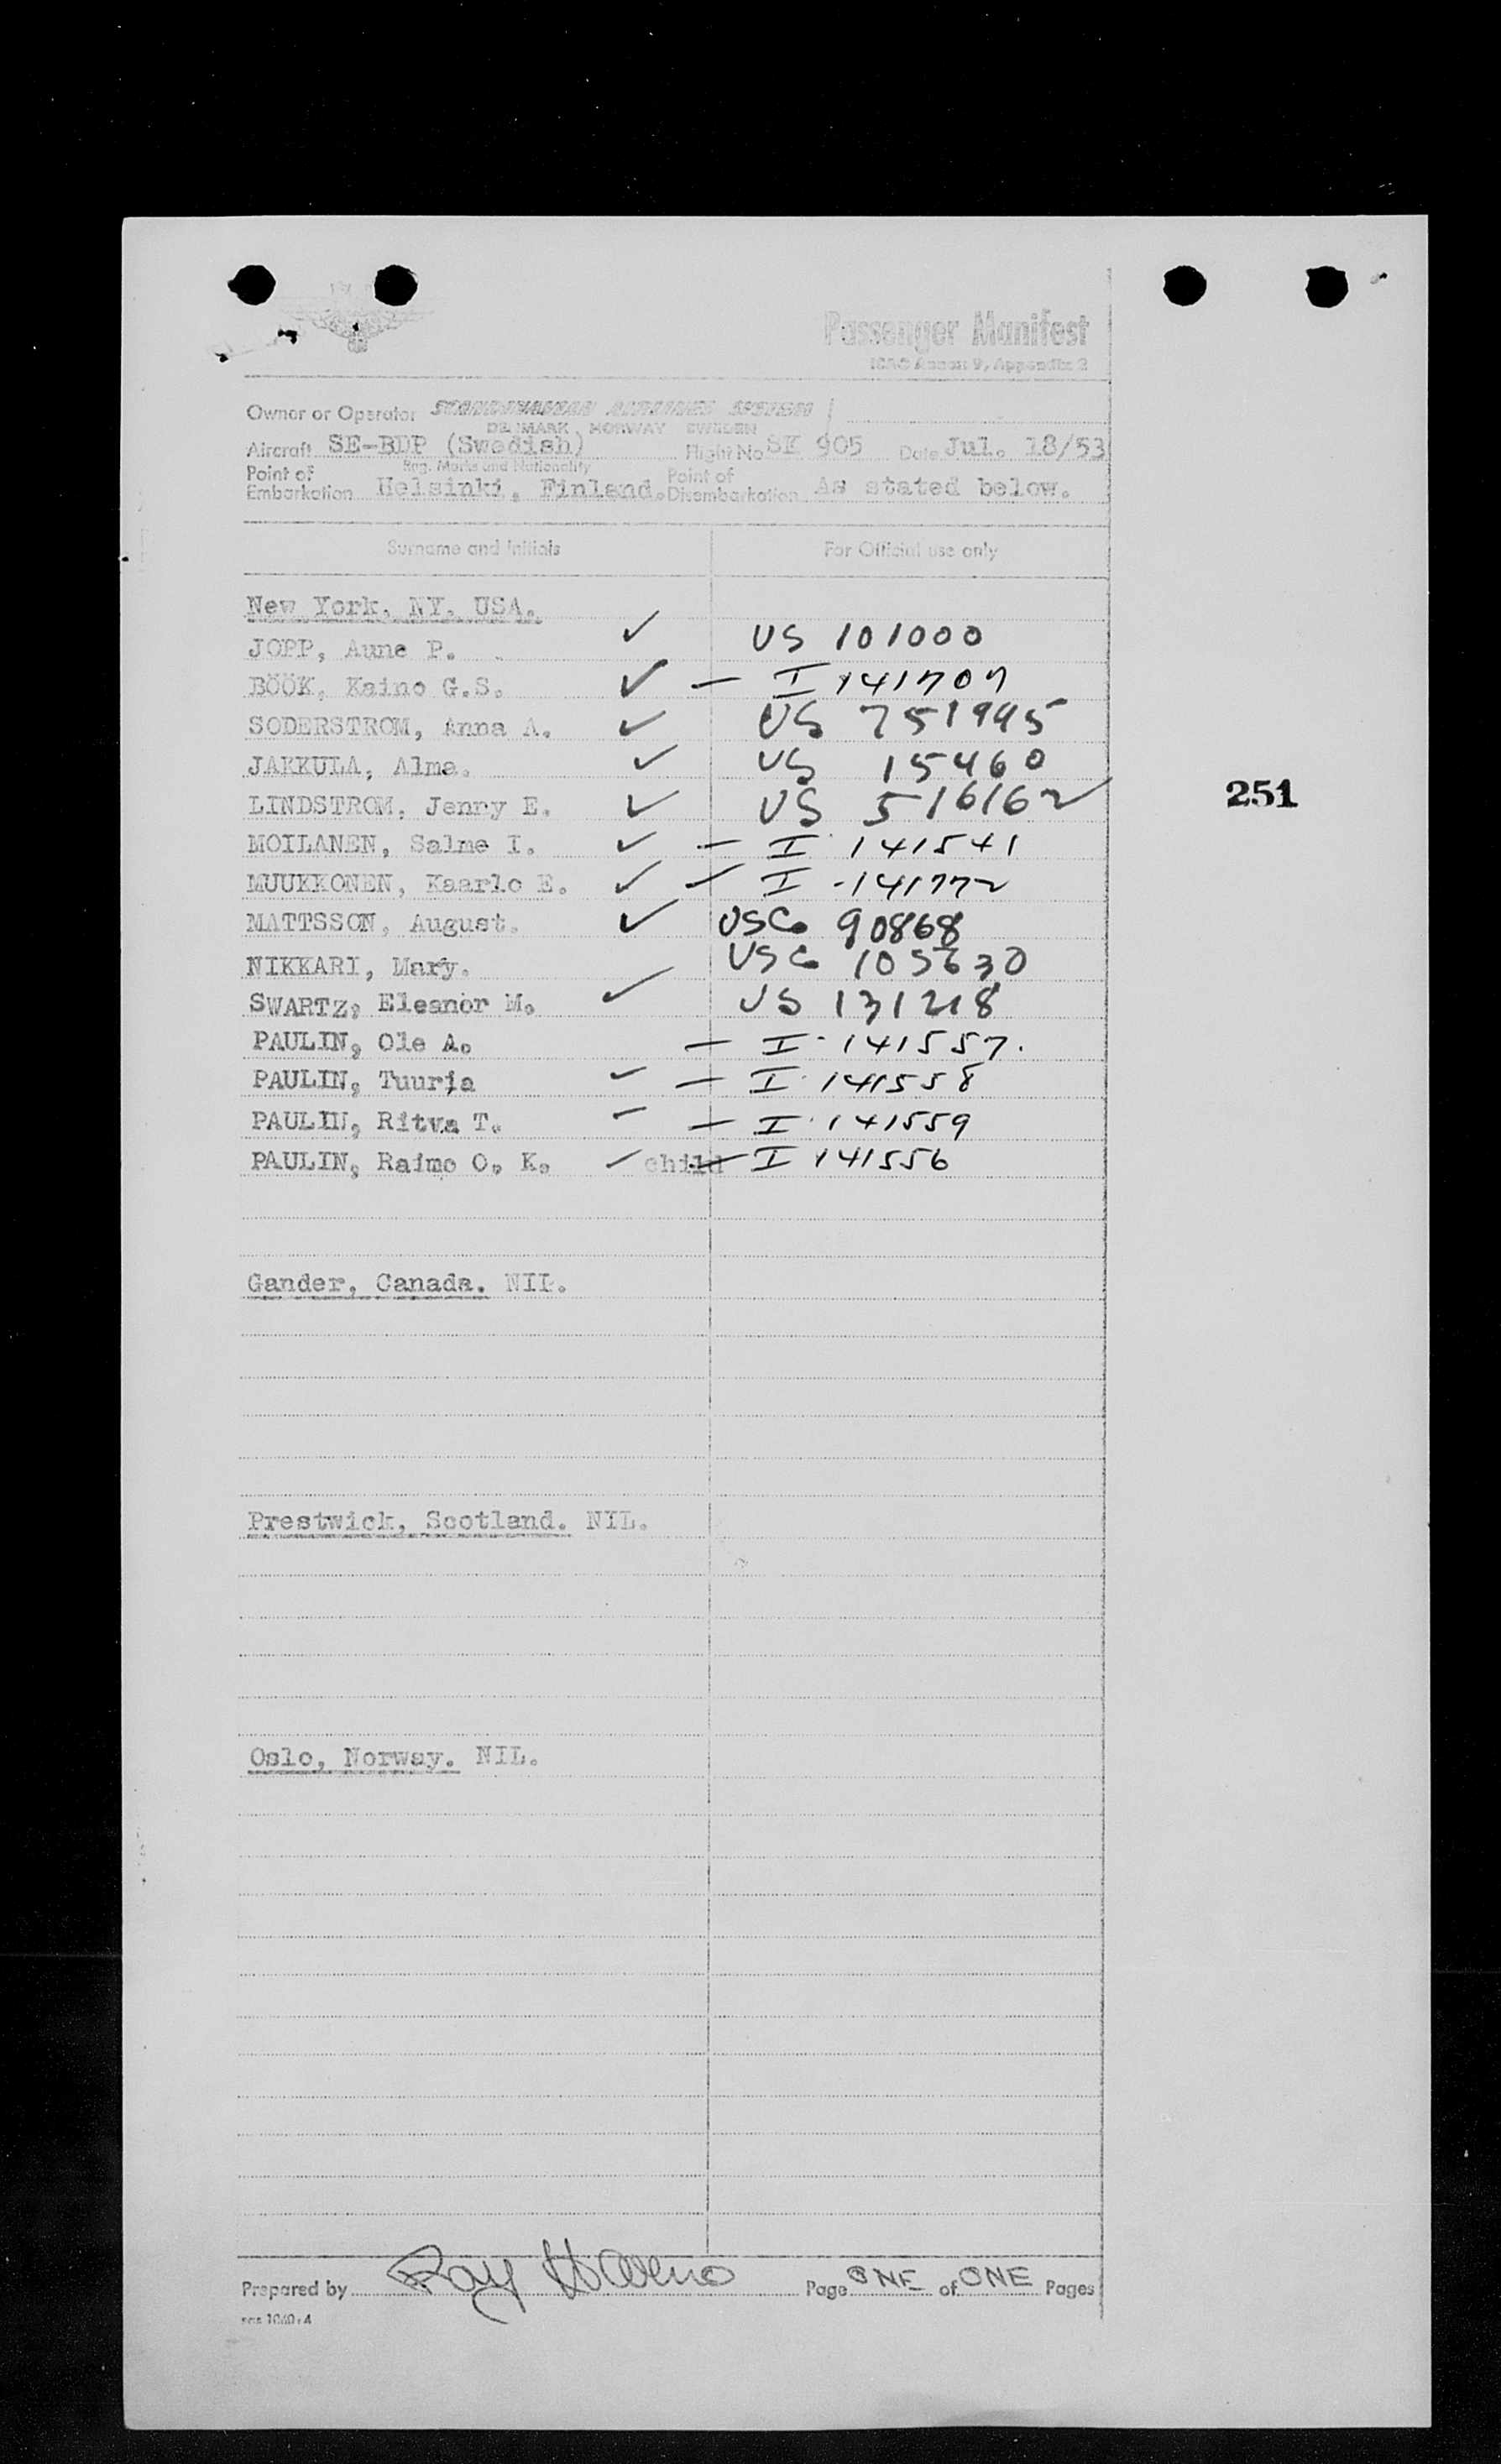 Passenger Manifest
ICAO Annex 9, Appendix 3
Owner or Operator SCANDINAVIAN AIRLINES SYSTEM
DENMARK NORWAY SWEDEN
Aircraft SE-BDP (Swedish) Flight No SK 905 Date Jul. 18/53
Reg. Marks and Nationality
Point of Embarkation Helsinki, Finland. Point of Disembarkation As stated below.
Surname and Initials For Official use only
New York, NY. USA.
JOPP, Aune P. ✓ US 101000
BÖÖK, Kaino G.S. ✓ — I 141707
SODERSTROM, Anna A. ✓ US 751995
JAKKULA, Alma. ✓ US 15460
LINDSTROM, Jenny E. ✓ US 516162
MOILANEN, Salme I. ✓ — I 141541
MUUKKONEN, Kaarlo E. ✓ — I -141772
MATTSSON, August. ✓ USC 90868
NIKKARI, Mary. USC 105630
SWARTZ, Eleanor M. ✓ US 131218
PAULIN, Ole A. — I-141557.
PAULIN, Tuurja ✓ — I 141558
PAULIN, Ritva T. — I 141559
PAULIN, Raimo O. K. ✓ child — I 141556
251
Gander, Canada. NIL.
Prestwick, Scotland. NIL.
Oslo, Norway. NIL.
Prepared by Ray Page ONE of ONE Pages